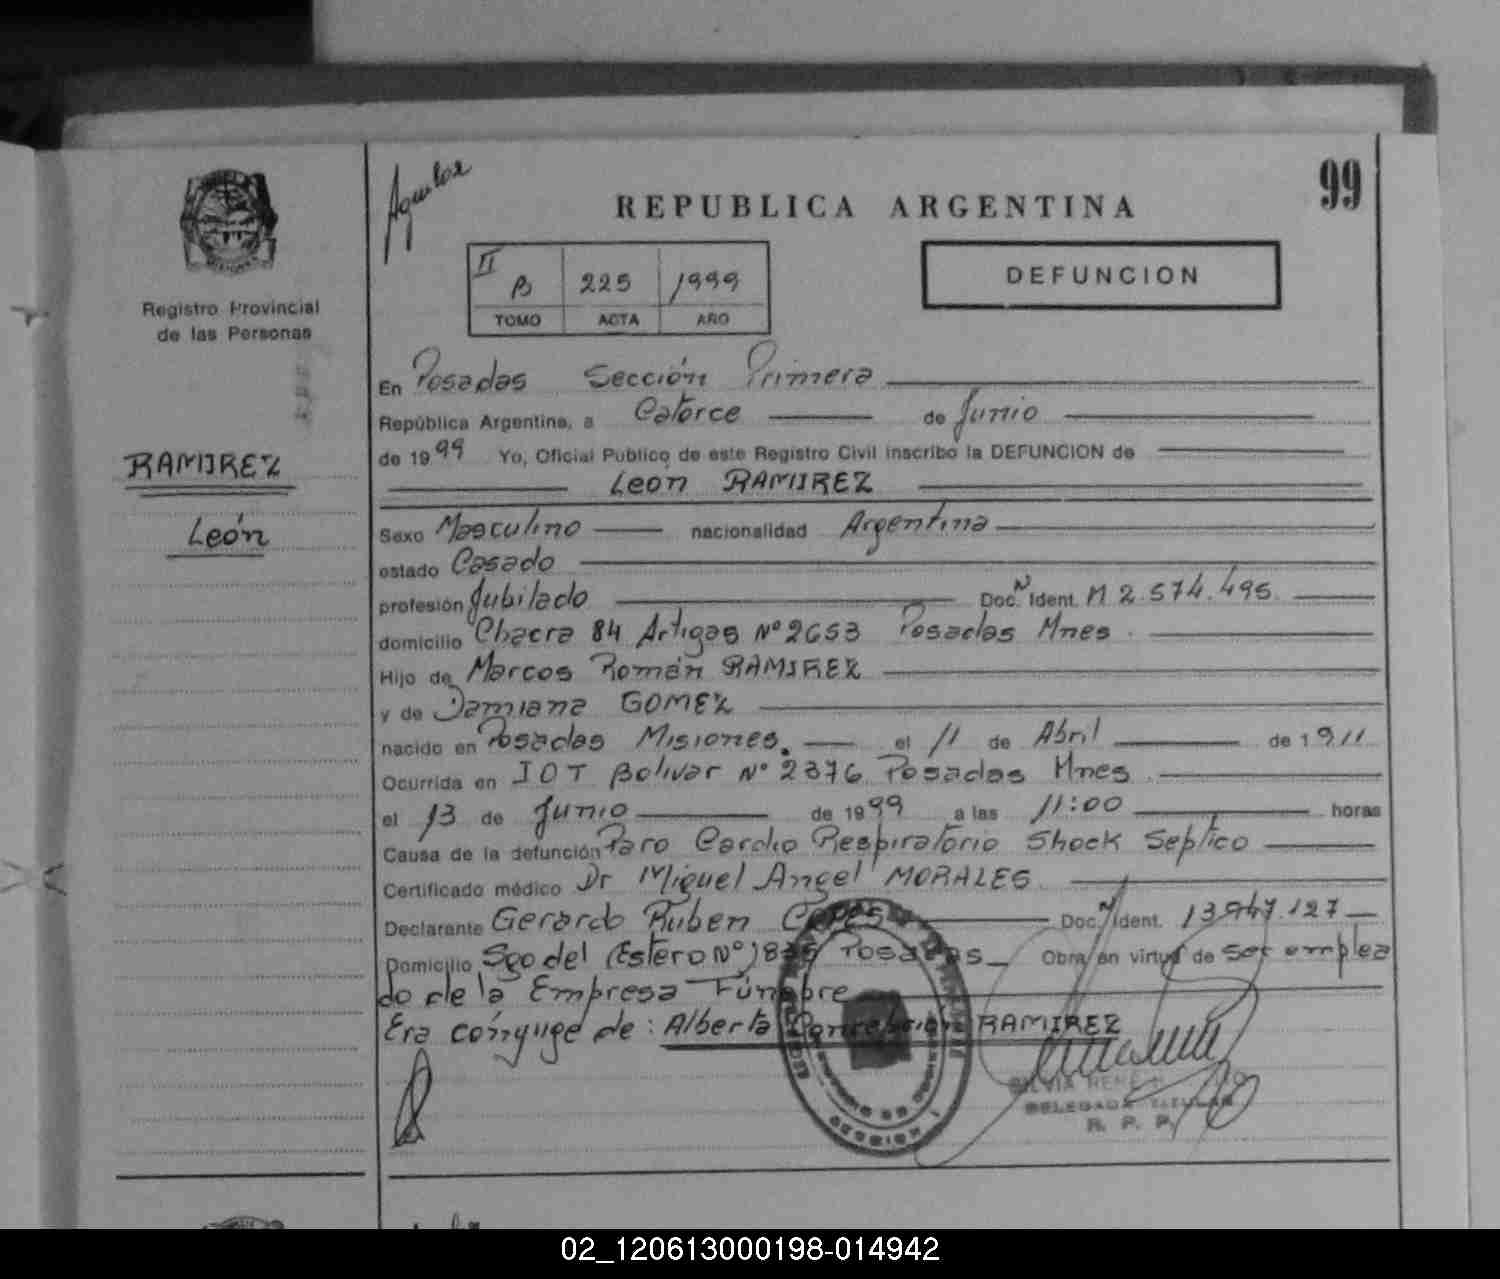 Aguilar
REPUBLICA ARGENTINA
99
II
B 225 1999
TOMO ACTA AÑO
DEFUNCION
MISIONES
Registro Provincial
de las Personas
RAMIREZ
León
En Posadas Sección Primera
República Argentina, a Catorce de Junio
de 1999 Yo, Oficial Publico de este Registro Civil inscribo la DEFUNCION de
León RAMIREZ
Sexo Masculino nacionalidad Argentina
estado Casado
profesión Jubilado Doc. Ident. M 2.574.495
domicilio Chacra 84 Artigas Nº 2653 Posadas Mnes.
Hijo de Marcos Román RAMIREZ
y de Damiana GOMEZ
nacido en Posadas Misiones. el 11 de Abril de 1911
Ocurrida en IOT Bolivar Nº 2376 Posadas Mnes.
el 13 de Junio de 1999 a las 11:00 horas
Causa de la defunción Paro Cardio Respiratorio Shock Septico
Certificado médico Dr Miguel Angel MORALES
Declarante Gerardo Ruben Doc. Ident. 13.947.127
Domicilio Sgo del Estero Nº 1835 Posadas Obra en virtud de ser emplea
do de la Empresa Fúnebre
Era cónyuge de: Alberta Concepción RAMIREZ
SILVIA RENE
DELEGADA TITULAR
R. P. P.
SECCION 1
02_120613000198-014942